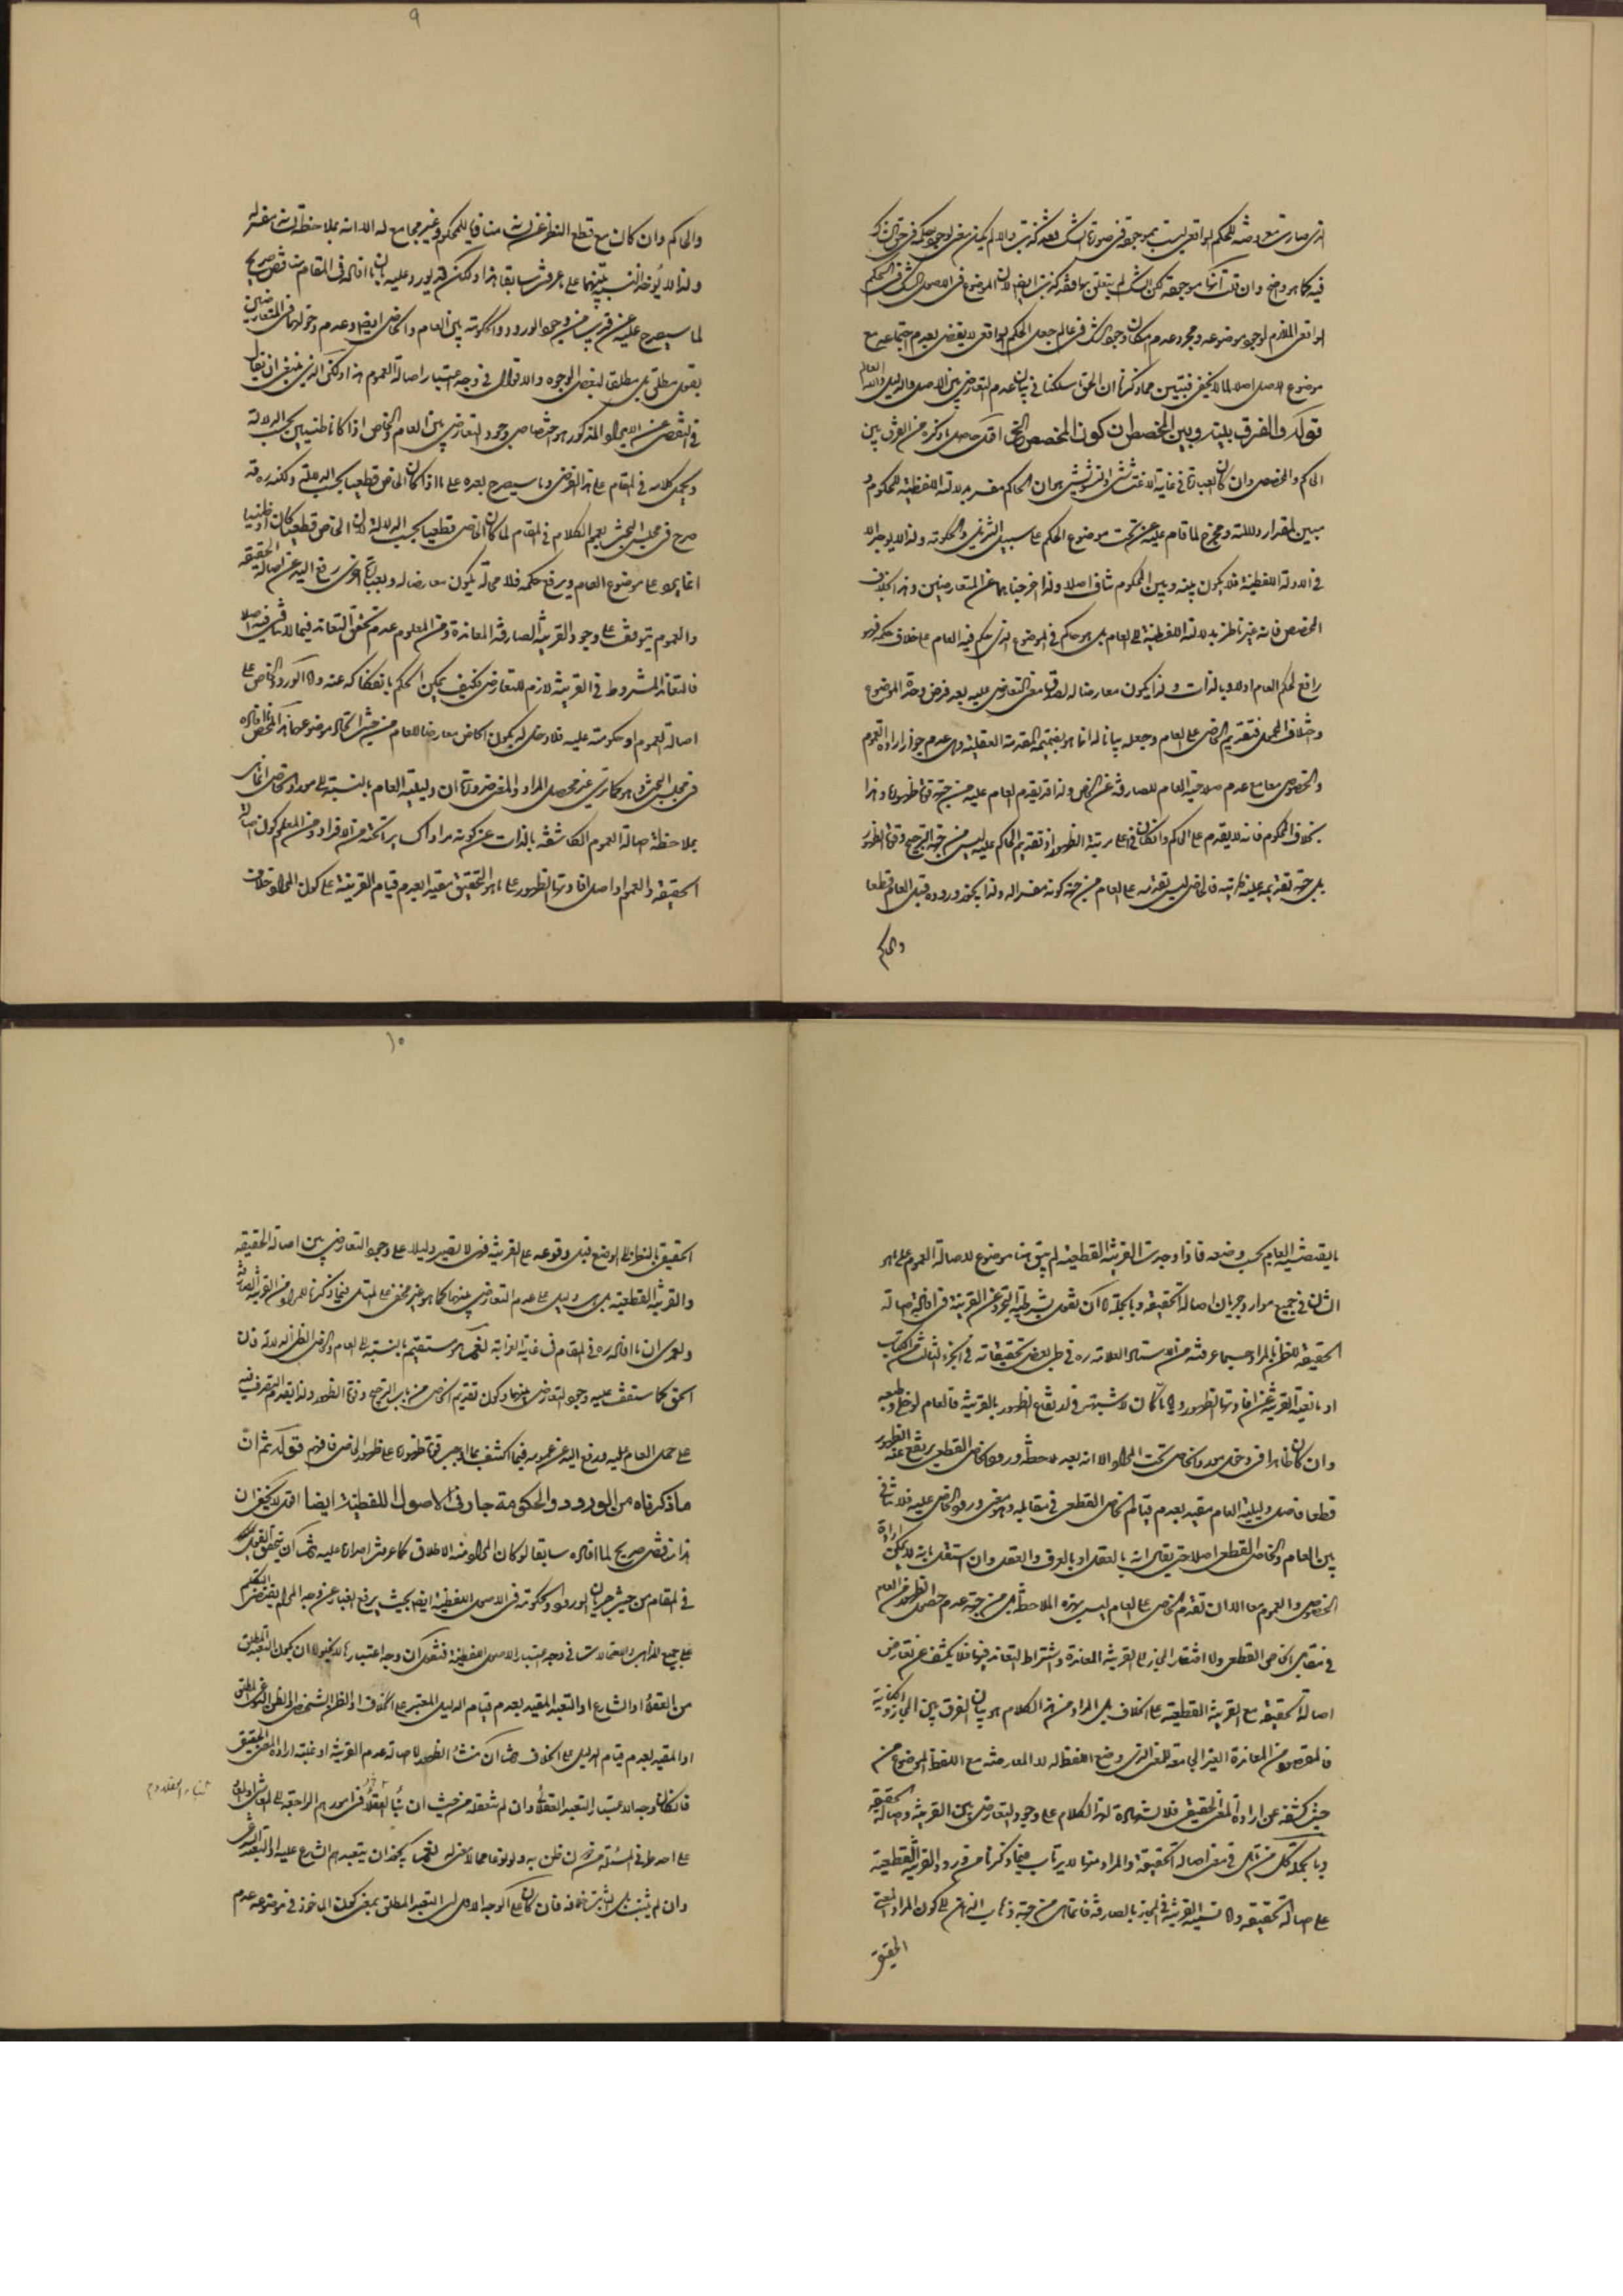 فيه كما هو واضح وان قلت انها موجودة لكن الشك لم يتعلق بها فقد كذبت ايضا لان الموضوع في الاصول الشك في الحكم
الواقعي الملازم لوجود موضوعه ومجرد عدم امكان وجود الشك في عالم جعل الحكم الواقعي لا يقضي بعدم اجتماعه مع
موضوع الاصل اصلا كما لا يخفى فتبين مما ذكرنا ان الحق ما سلكنا في بيان عدم التعارض بين الاصل والدليل والله العالم
قوله والفرق بينه وبين المخصص ان كون المخصص الخ اقول حاصل ما ذكره من الفرق بين
الحاكم والمخصص وان كان العبارة في غاية الاغتشاش والتشويش هو ان الحاكم مفسر بدلالته اللفظية للمحكوم و
مبين لمقدار دلالته ومخرج لما قام عليه عن تحت موضوع الحكم على سبيل التنزيل والحكومة ولذا لا يوجد الا
في الادلة اللفظية فلا يكون بينه وبين المحكوم تناف اصلا ولذا اخرجناهما عن المتعارضين وهذا بخلاف
المخصص فانه غير ناظر بدلالته اللفظية الى العام بل هو حاكم في الموضوع الذي حكم فيه العام على خلاف حكمه فهو
رافع لحكم العام اولا وبالذات ولذا يكون معارضا له لصدق معنى التعارض عليه بعد فرض وحدة الموضوع
واختلاف المحمول فتقديم الخاص على العام وجعله بيانا له انما هو بضميمة المقدمة العقلية وهي عدم جواز ارادة العموم
والخصوص معا مع عدم صلاحية العام للصارفية عن الخاص ولذا قد يقدم العام عليه من جهة قوة ظهوره وهذا
بخلاف المحكوم فانه لا يقدم على الحاكم وان كان في اعلى مرتبة الظهور اذ تقديم الحاكم عليه ليس من جهة الترجيح وقوة الظهور
بل جهة تقديمه عليه ظ مرتبته فالخاص ليس تقديمه على العام من جهة كونه مفسرا له ولذا يجوز وروده قبل العام قطعا
والحاكم
٩
والحاكم وان كان مع قطع النظر عن لسانه منافيا للمحكوم وغير مجامع له الا انه بملاحظة لسانه مفسر له
ولذا لا يؤخذ النسبة بينهما على ما عرفت سابقا هذا ولكن قد يورد عليه بان ما افاده في المقام مناقض صريح
لما سيصرح عليه عن قريب من وجود الورود والحكومة بين العام والخاص ايضا وعدم دخولهما في المتعارضين
بقول مطلق بل مطلقا لبعض الوجوه والاقوال في وجه اعتبار اصالة العموم هذا ولكن الذي ينبغي ان يقال
في التفصي عن الايراد المذكور هو اختصاص وجود التعارض بين العام والخاص اذا كانا ظنيين بحسب الدلالة
ويحمل كلامه في المقام على هذا الفرض وما سيصرح بعده على ما اذا كان الخاص قطعيا بحسب الدلالة ولكنه ره قد
صرح في مجلس البحث بتعميم الكلام في المقام لما كان الخاص قطعيا بحسب الدلالة لان الخاص قطعيا كان او ظنيا
انما يرد على موضوع العام ويرفع حكمه فلا محالة يكون معارضا له وبعبارة اخرى رفع اليد عن اصالة الحقيقة
والعموم يتوقف على وجود القرينة الصارفة المعاندة ومن المعلوم عدم تحقق التعاند فيما لا تنافي فيه اصلا
فالتعاند المشروط في القرينة لازم للتعارض فكيف يمكن الحكم بانفكاكه عنه واما الورود الخاص على
اصالة العموم او حكومته عليه فلا دخل له بكون الخاص معارضا للعام من حيث اتحاد موضوعهما هذا ملخص ما افاده
في مجلس البحث وهو كما ترى غير محصل المراد والمقصود ضرورة ان دليلية العام بالنسبة الى مورد الخاص انما هي
بملاحظة اصالة العموم الكاشفة بالذات عن كونه مرادا كسائر ما تحته من الافراد ومن المعلوم كون اصالة
الحقيقة والعموم او اصل افادتها الظهور على ما هو التحقيق مقيدا بعدم قيام القرينة على كون المراد خلاف
ما يقتضيه العام بحسب وضعه فاذا وجدت القرينة القطعية لم يبق هنا موضوع لاصالة العموم على ما هو
الشان في جميع موارد جريان اصالة الحقيقة وبالجملة اما ان نقول بشرطية التجرد عن القرينة في افادة اصالة
الحقيقة للظن بالمراد حسبما عرفته من الاستاد العلامة ره في طي بعض تحقيقاته في الجزء الثالث من الكتاب
او مانعية القرينة عن افادتها الظهور واياما كان لا شبهة في ارتفاع الظهور بالقرينة فالعام لو خلي وطبعه
وان كان ظاهرا في دخول مورد الخاص تحت المراد الا انه بعد ملاحظة ورود الخاص القطعي يرتفع عنه الظهور
قطعا فاصل دليلية العام مقيد بعدم قيام الخاص القطعي في مقابله وهو معنى ورود الخاص عليه فلا تنافي
بين العام والخاص القطعي اصلا حتى يقال انه بالعقل او بالعرف والعقل وان استقل بانه لا يمكن ارادة
الخصوص والعموم معا الا ان تقدم الخاص على العام ليس بهذه الملاحظة بل من جهة عدم حصول الظهور من العام
في مقابل الخاص القطعي واما افتقار المجاز الى القرينة المعاندة واشتراط التعاند فيها فلا يكشف عن تعارض
اصالة الحقيقة مع القرينة القطعية على الخلاف بل المراد من هذا الكلام هو بيان الفرق بين المجاز والكناية
فالمقصود من المعاندة الغير المجامعة للمعنى الذي وضع اللفظ له لا المعارضة مع اللفظ الموضوع من
حيث كشفه عن ارادة المعنى الحقيقي فلا شهادة لهذا الكلام على وجود التعارض بين القرينة واصالة الحقيقة
وبالجملة كل من تامل في معنى اصالة الحقيقة والمراد منها لا يرتاب فيما ذكرنا من ورود القرينة القطعية
على اصالة الحقيقة واما تسمية القرينة في المجاز بالصارفة فانما هي من جهة ذهاب الذهن الى كون المراد المعنى
الحقيقي
١٠
الحقيقي بالنظر الى الوضع قبل وقوعه على القرينة فهي لا تصير دليلا على وجود التعارض بين اصالة الحقيقة
والقرينة القطعية بل هي دليل على عدم التعارض بينهما كما هو غير مخفي على المتامل فيما ذكرنا للمراد من القرينة الصارفة
ولعمري ان ما افاده ره في المقام في غاية الغرابة نعم هو مستقيم بالنسبة الى العام والخاص الظني الدلالة فان
الحق كما ستقف عليه وجود التعارض بينهما وكون تقديم الخاص من باب الترجيح وقوة الظهور ولذا يقدم التصرف فيه
على حمل العام عليه ورفع اليد عن عمومه فيما اكتشف بما اوجب قوة ظهوره على ظهور الخاص فافهم قوله ثم ان
ما ذكرناه من الورود والحكومة جار في الاصول اللفظية ايضا اقول لا يخفى ان
هذا مناقض صريح لما افاده سابقا لو كان المراد منه الاطلاق كما عرفت اصراره عليه ثم ان تحقق القول
في المقام من حيث جريان الورود والحكومة في الاصول اللفظية ايضا بحيث يرفع الغبار عن وجه المرام يقتضي التكلم
على جميع المذاهب والاحتمالات في وجه اعتبار الاصول اللفظية فنقول ان وجه اعتبارها لا يخلو اما ان يكون التعبد المطلق
من العقلاء او الشارع او التعبد المقيد بعدم قيام الدليل المعتبر على الخلاف او الظن الشخصي او الظن النوعي المطلق
او المقيد بعدم قيام الدليل على الخلاف ثم ان منشأ الظهور اما اصالة عدم القرينة او غلبة ارادة المعنى الحقيقي
فان كان وجه الاعتبار التعبد العقلائي وان لم نتعقله من حيث ان بناء العقلاء في امورهم الراجعة الى المعاش
وان لم يثبت بل الثابت خلافه فان كان على الوجه الاول اي التعبد المطلق بمعنى كون الماخوذ في موضوعه عدم